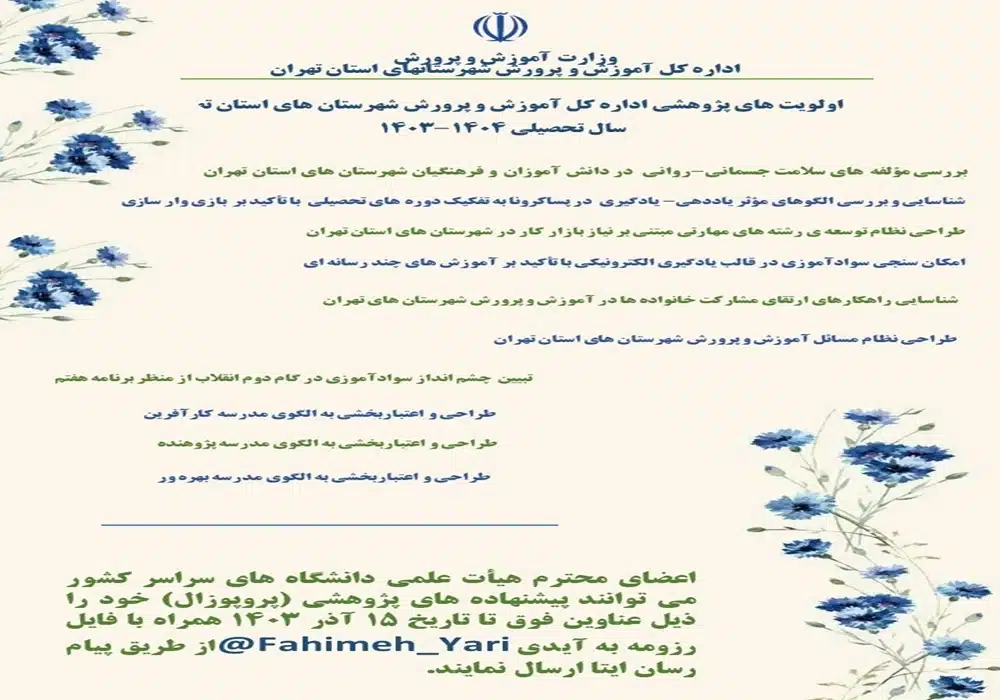 وزارت آموزش و پرورش
اداره کل آموزش و پرورش شهرستانهای استان تهران
اولویت های پژوهشی اداره کل آموزش و پرورش شهرستان های استان ته
سال تحصیلی ۱۴۰۴-۱۴۰۳
بررسی مؤلفه های سلامت جسمانی-روانی در دانش آموزان و فرهنگیان شهرستان های استان تهران
شناسایی و بررسی الگوهای مؤثر یاددهی- یادگیری در پساکرونا به تفکیک دوره های تحصیلی با تأکید بر بازی وار سازی
طراحی نظام توسعه ی رشته های مهارتی مبتنی بر نیاز بازار کار در شهرستان های استان تهران
امکان سنجی سوادآموزی در قالب یادگیری الکترونیکی با تأکید بر آموزش های چند رسانه ای
شناسایی راهکارهای ارتقای مشارکت خانواده ها در آموزش و پرورش شهرستان های تهران
طراحی نظام مسائل آموزش و پرورش شهرستان های استان تهران
تبیین چشم انداز سوادآموزی در گام دوم انقلاب از منظر برنامه هفتم
طراحی و اعتباربخشی به الگوی مدرسه کارآفرین
طراحی و اعتباربخشی به الگوی مدرسه پژوهنده
طراحی و اعتباربخشی به الگوی مدرسه بهره ور
اعضای محترم هیأت علمی دانشگاه های سراسر کشور
می توانند پیشنهاده های پژوهشی (پروپوزال) خود را
ذیل عناوین فوق تا تاریخ ۱۵ آذر ۱۴۰۳ همراه با فایل
رزومه به آیدی @Fahimeh_Yari از طریق پیام
رسان ایتا ارسال نمایند.